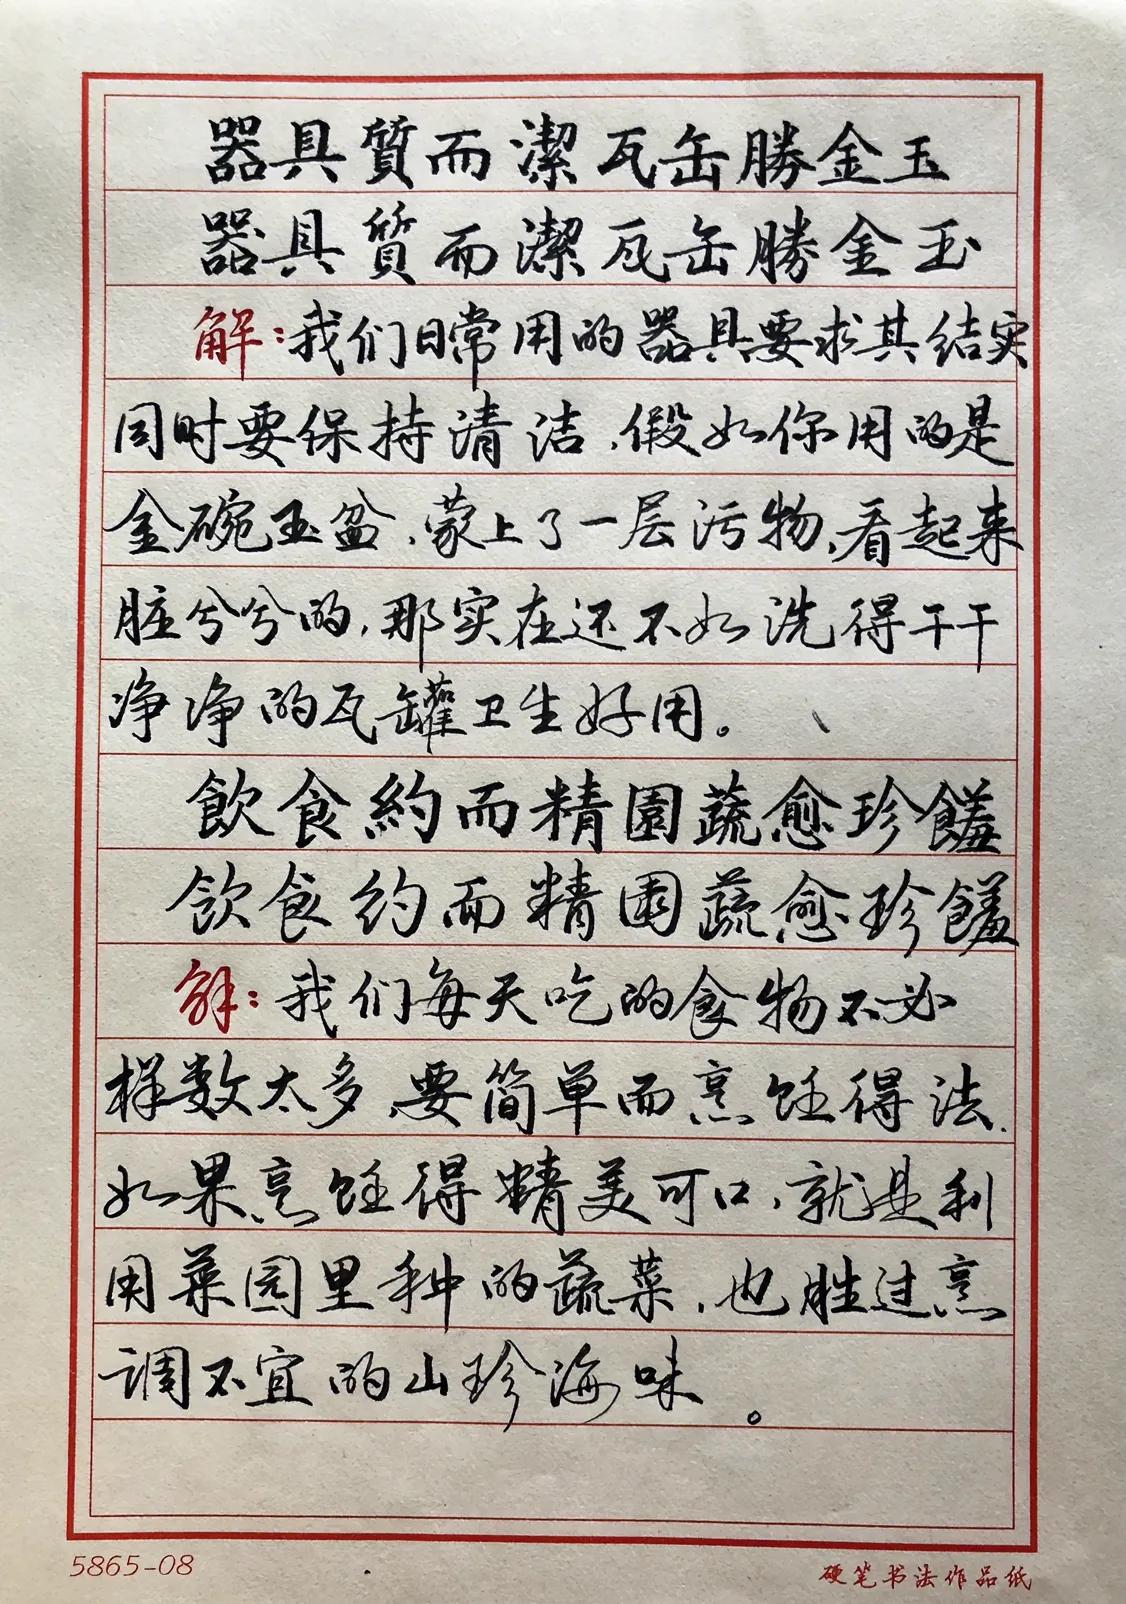 器具質而潔瓦缶勝金玉
器具質而潔瓦缶勝金玉
解:我们日常用的器具要求其结实
同时要保持清洁,假如你用的是
金碗玉盆,蒙上了一层污物,看起来
脏兮兮的,那实在还不如洗得干干
净净的瓦罐卫生好用。
飲食約而精園蔬愈珍饈
飲食约而精園蔬愈珍饈
解:我们每天吃的食物不必
样数太多,要简单而烹饪得法.
如果烹饪得精美可口,就是利
用菜园里种的蔬菜,也胜过烹
调不宜的山珍海味。
5865-08
硬笔书法作品纸